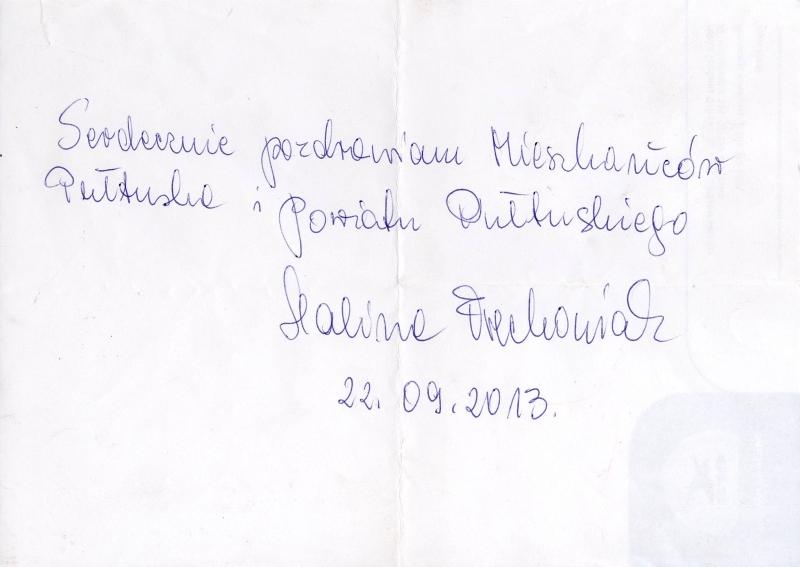 Serdecznie pozdrawiam Mieszkańców
Pułtuska i Powiatu Pułtuskiego
Halina Frąckowiak
22.09.2013.